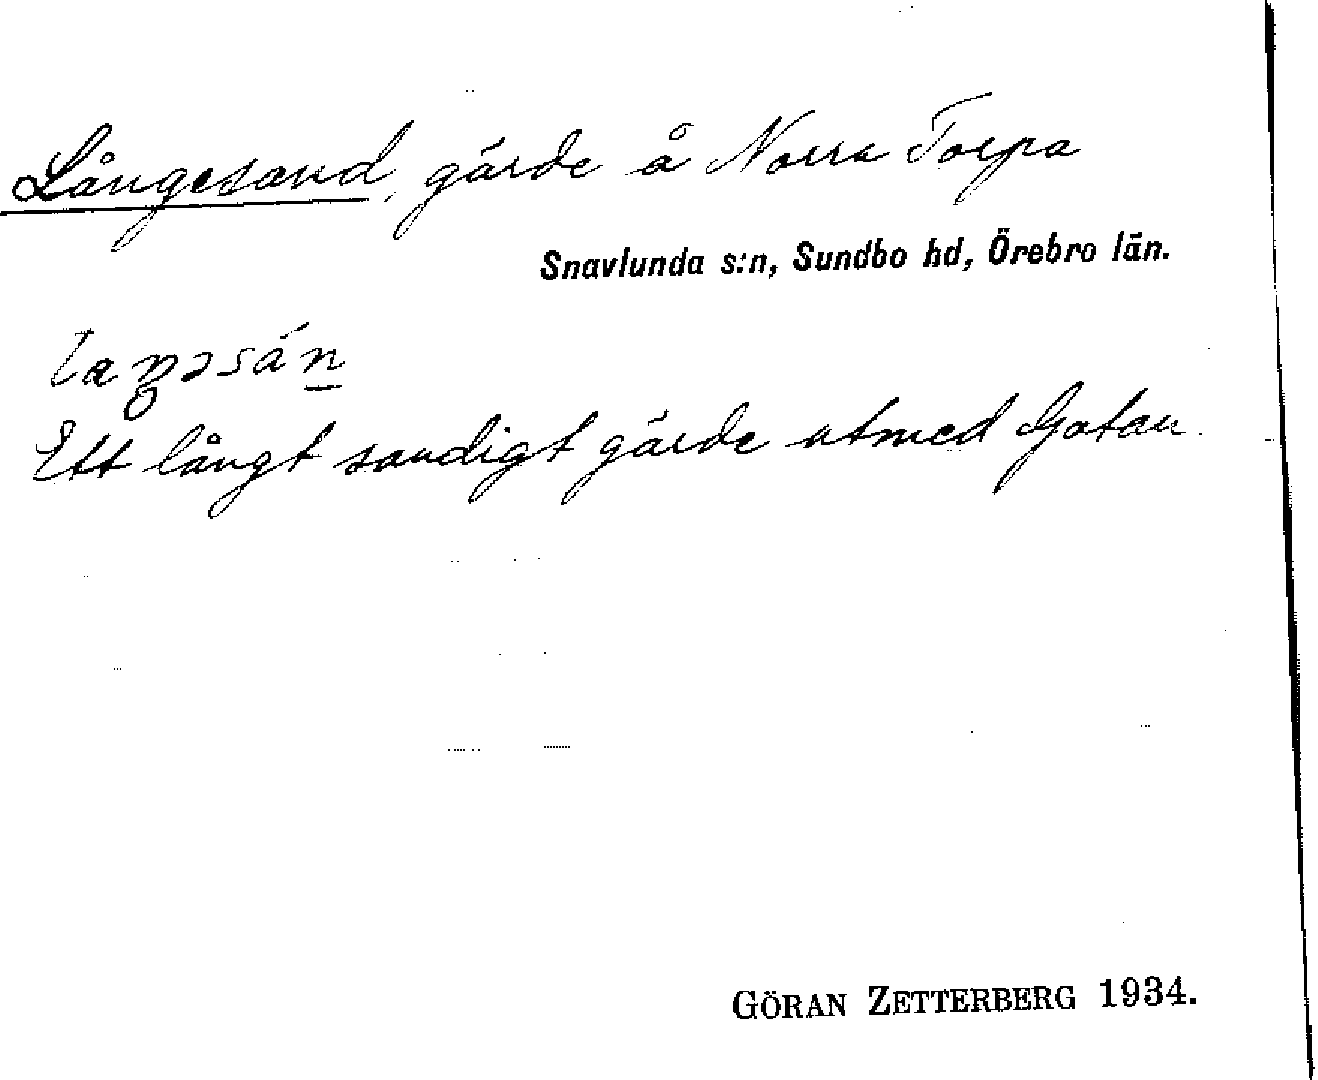 Långesand, gärde å Norra Torpa
Snavlunda s:n, Sundbo hd, Örebro län.
Ett långt sandigt gärde utmed Gatan.
GÖRAN ZETTERBERG 1934.